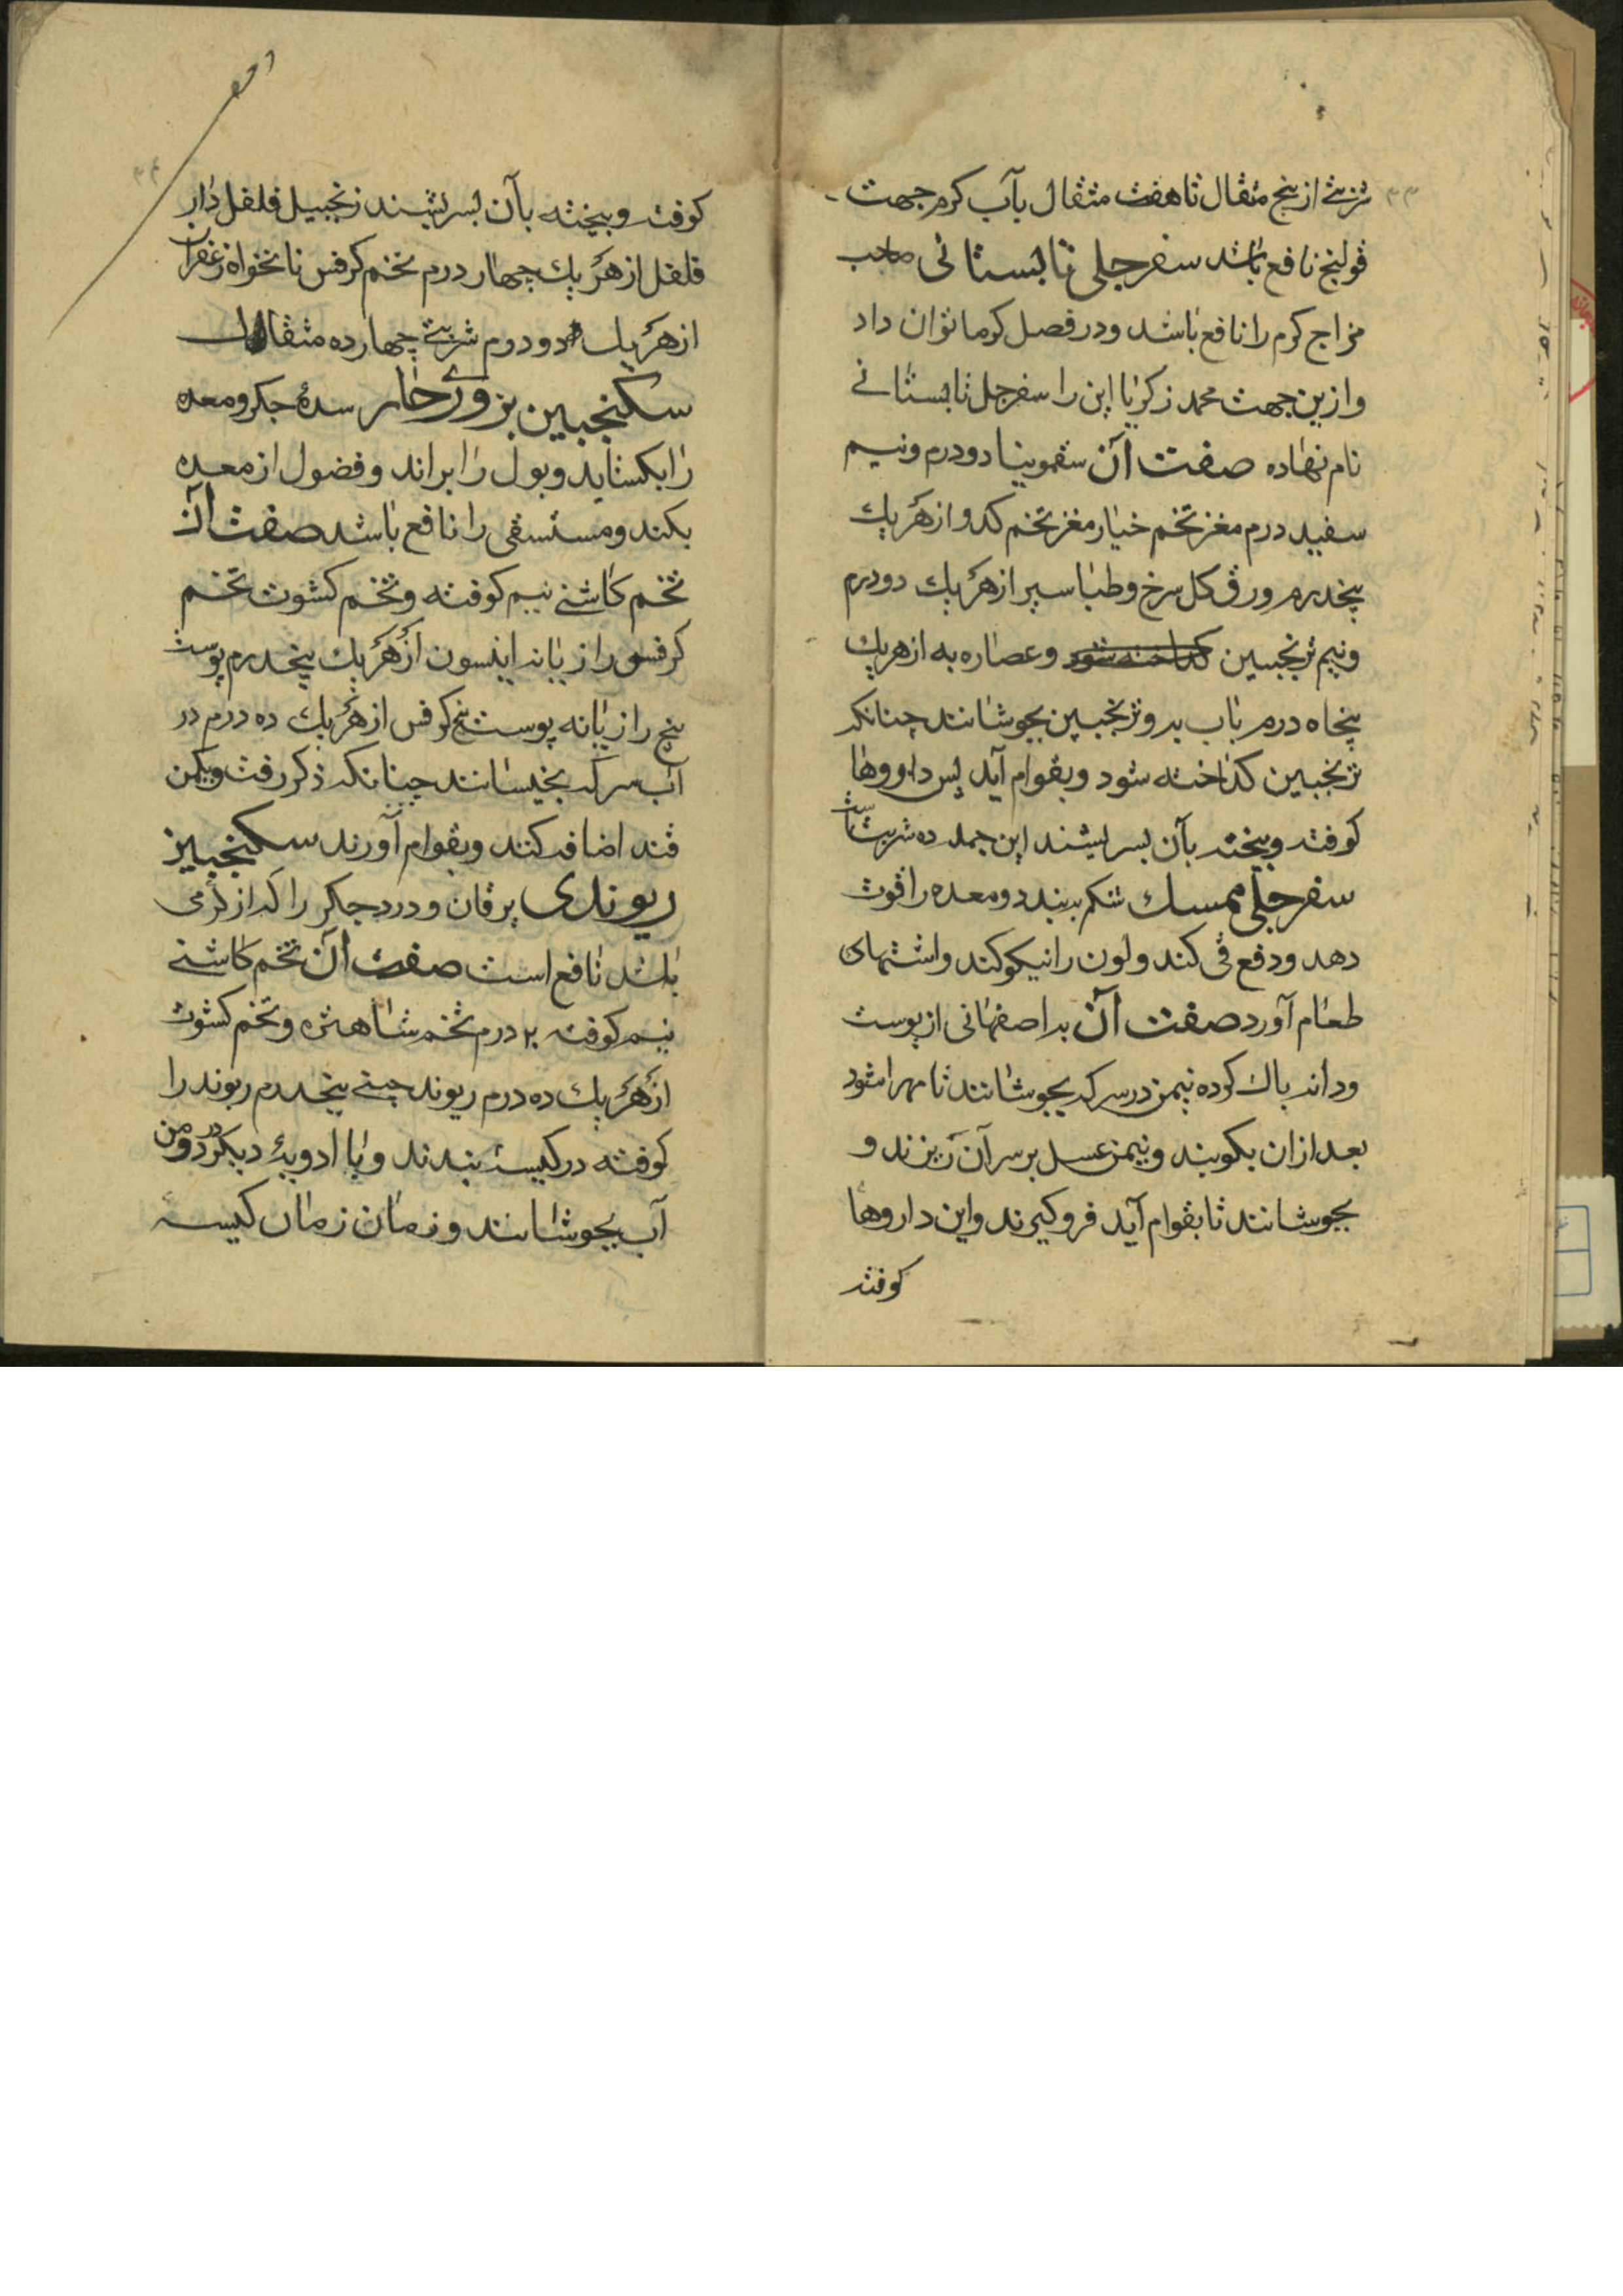 ۳۳
شربتی از پنج مثقال تا هفت مثقال بآب کرم جهت
قولنج نافع باشد سفرجلی تابستانی صاحب
مزاج کرم را نافع باشد و در فصل کرما توان داد
و ازین جهت محمد زکریا این را سفرجل تابستانی
نام نهاده صفت آن سقمونیا دو درم و نیم
سفید درم مغز تخم خیار مغز تخم کدو از هر یک
پنجدرم ورق کل سرخ و طباسیر از هر یک دو درم
و نیم ترنجبین کداخته شود و عصاره به از هر یک
پنجاه درم باب به و ترنجبین بجوشانند چنانکه
ترنجبین کداخته شود و بقوام آید پس داروها
کوفته و بیخته بآن بسریشند این جمله ده شربتست
سفرجلی ممسک شکم ببندد و معده را قوت
دهد و دفع قی کند و لون را نیکو کند و اشتهای
طعام آورد صفت آن به اصفهانی از پوست
و دانه پاک کرده نیمن در سرکه بجوشانند تا مهرا شود
بعد ازان بکوبند و نیمن عسل بر سر آن ریزند و
بجوشانند تا بقوام آید فرو کیرند و این داروها
کوفته
۳۴
کوفته و بیخته بآن بسریشند زنجبیل فلفل دار
فلفل از هر یک چهار درم تخم کرفس نانخواه زعفران
از هر یک دو درم شربتی چهارده مثقال
سکنجبین بزوری حار سدهٔ جکر و معده
را بکشاید و بول را براند و فضول از معده
بکند و مستسقی را نافع باشد صفت آن
تخم کاشنی نیم کوفته و تخم کشوت تخم
کرفس رازیانه اینسون از هر یک پنجدرم پوست
بیخ رازیانه پوست بیخ کرفس از هر یک ده درم در
آب سرکه بخیسانند چنانکه ذکر رفت و یکمن
قند اضافه کنند و بقوام آورند سکنجبین
ریوندی یرقان و درد جکر را که از کرمی
باشد نافع است صفت آن تخم کاشنی
نیم کوفته ۲۰ درم تخم شاهتره و تخم کشوت
از هر یک ده درم ریوند چینی پنجدرم ریوند را
کوفته در کیسهٔ بندند و با ادویهٔ دیکر در دو من
آب بجوشانند و زمان زمان کیسهٔ